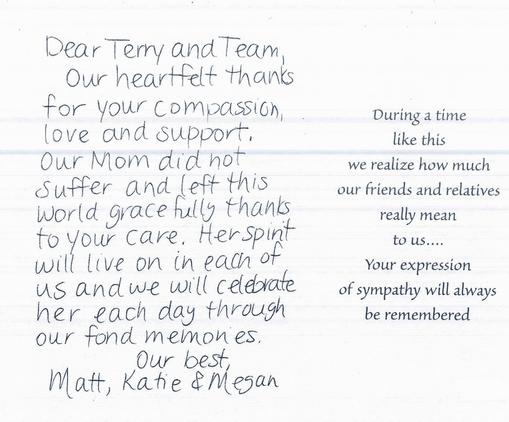 Dear Terry and Team,
Our heartfelt thanks
for your compassion,
love and support.
Our Mom did not
suffer and left this
world gracefully thanks
to your care. Her spirit
will live on in each of
us and we will celebrate
her each day through
our fond memories.
Our best,
Matt, Katie & Megan
During a time
like this
we realize how much
our friends and relatives
really mean
to us....
Your expression
of sympathy will always
be remembered